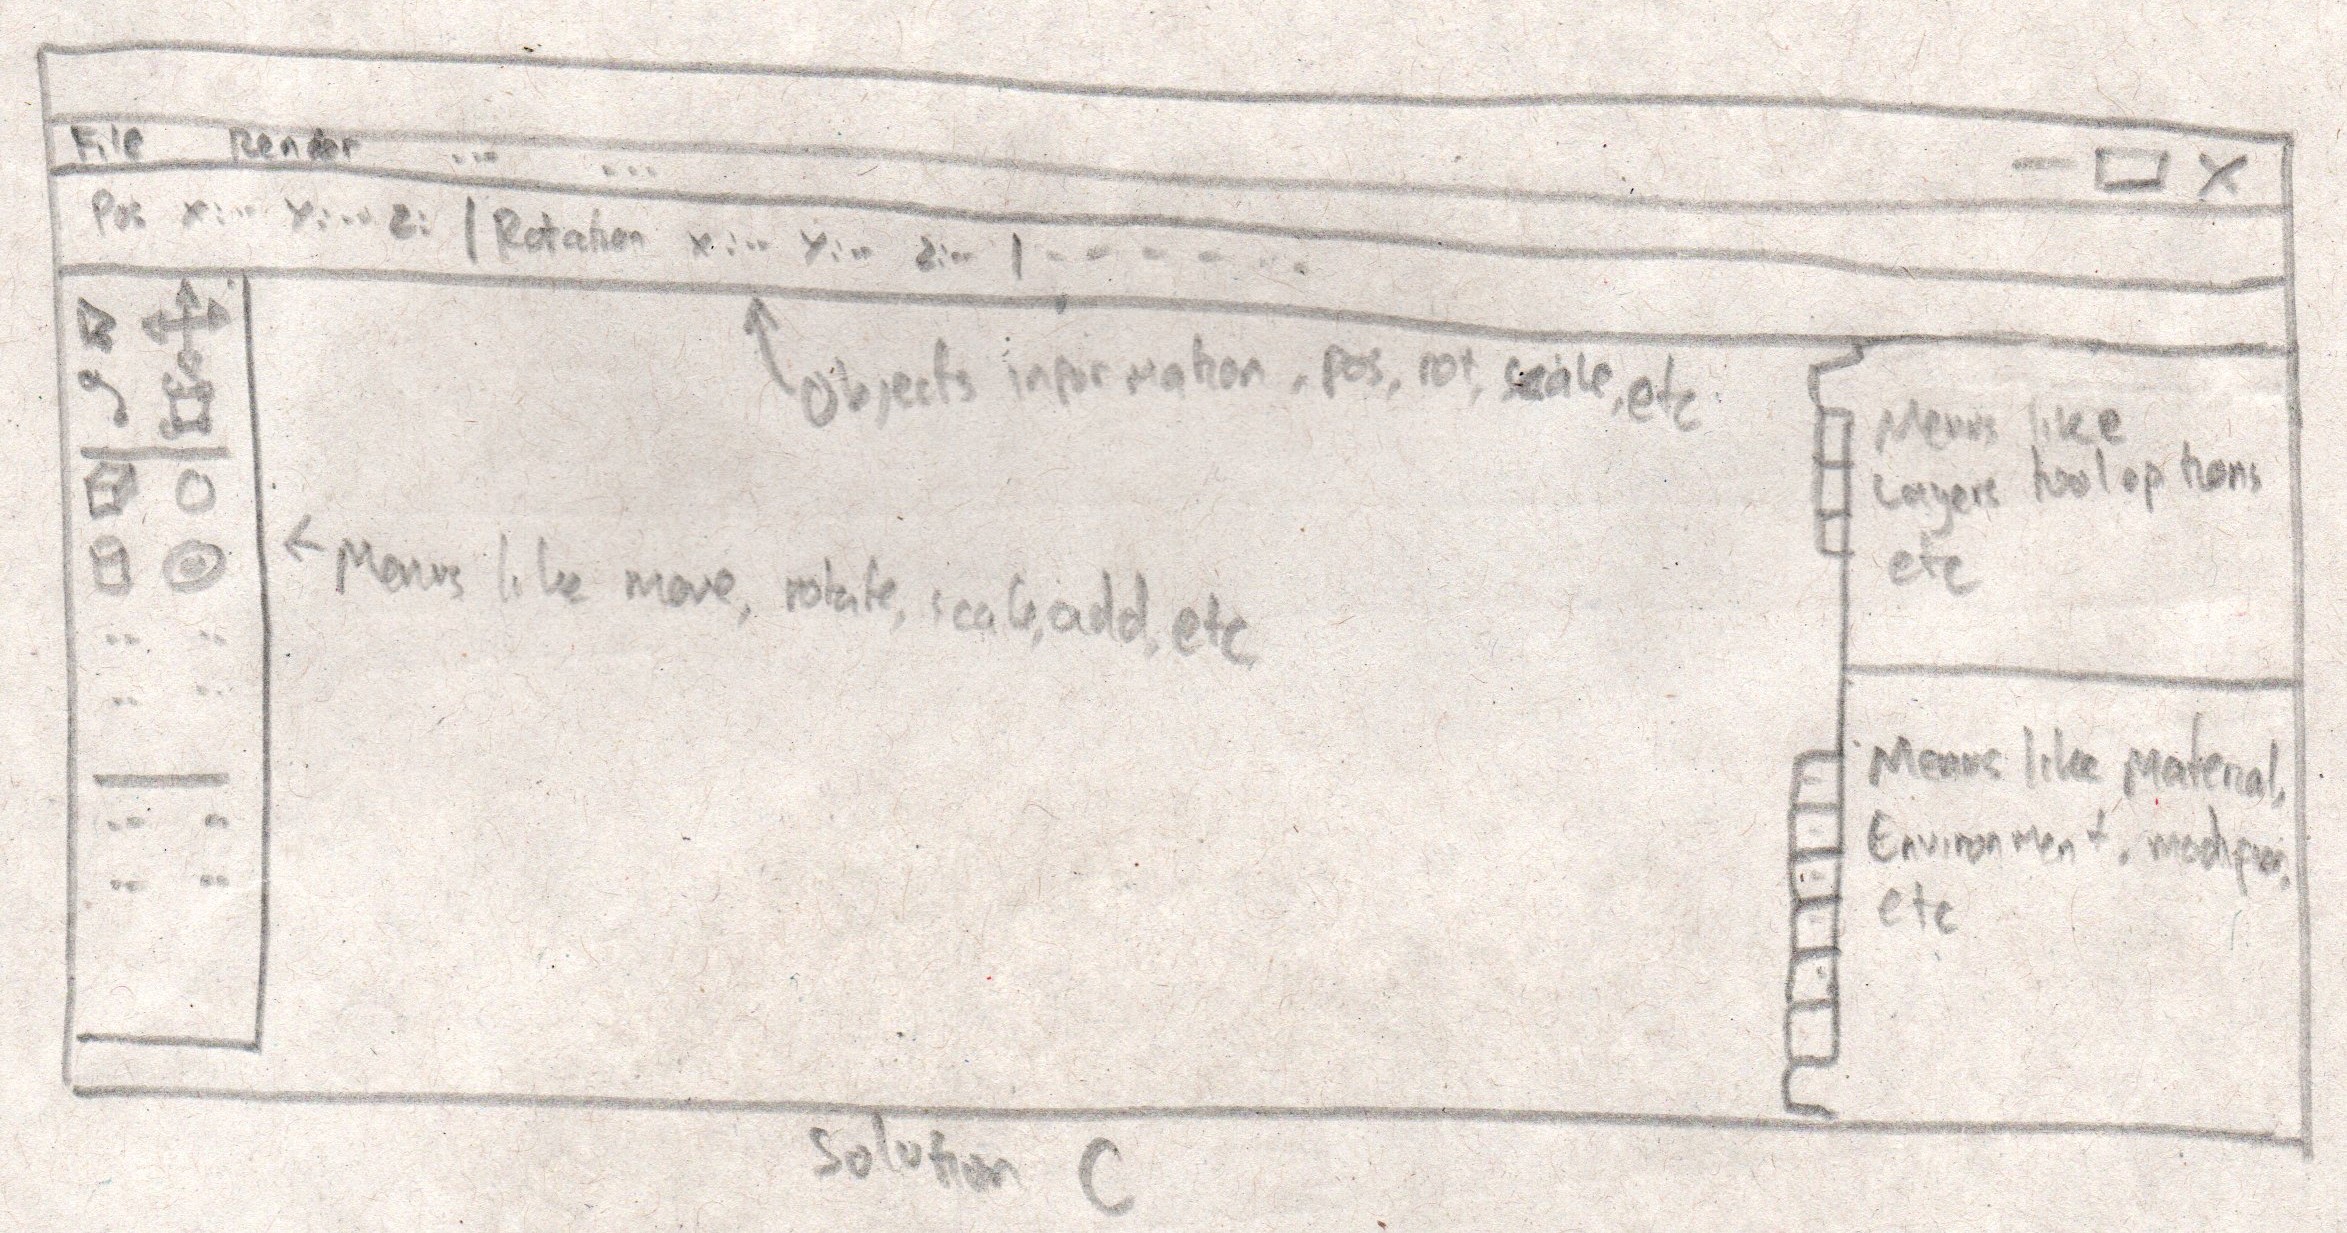 File Render ... ...
Pos X:.. Y:... Z: | Rotation X:.. Y:.. Z:.. | - - - - ...
Objects information, pos, rot, scale, etc
Menus like
Layers tool options
etc
Menus like move, rotate, scale, add, etc
Menus like Material,
Environment, modifier,
etc
Solution C